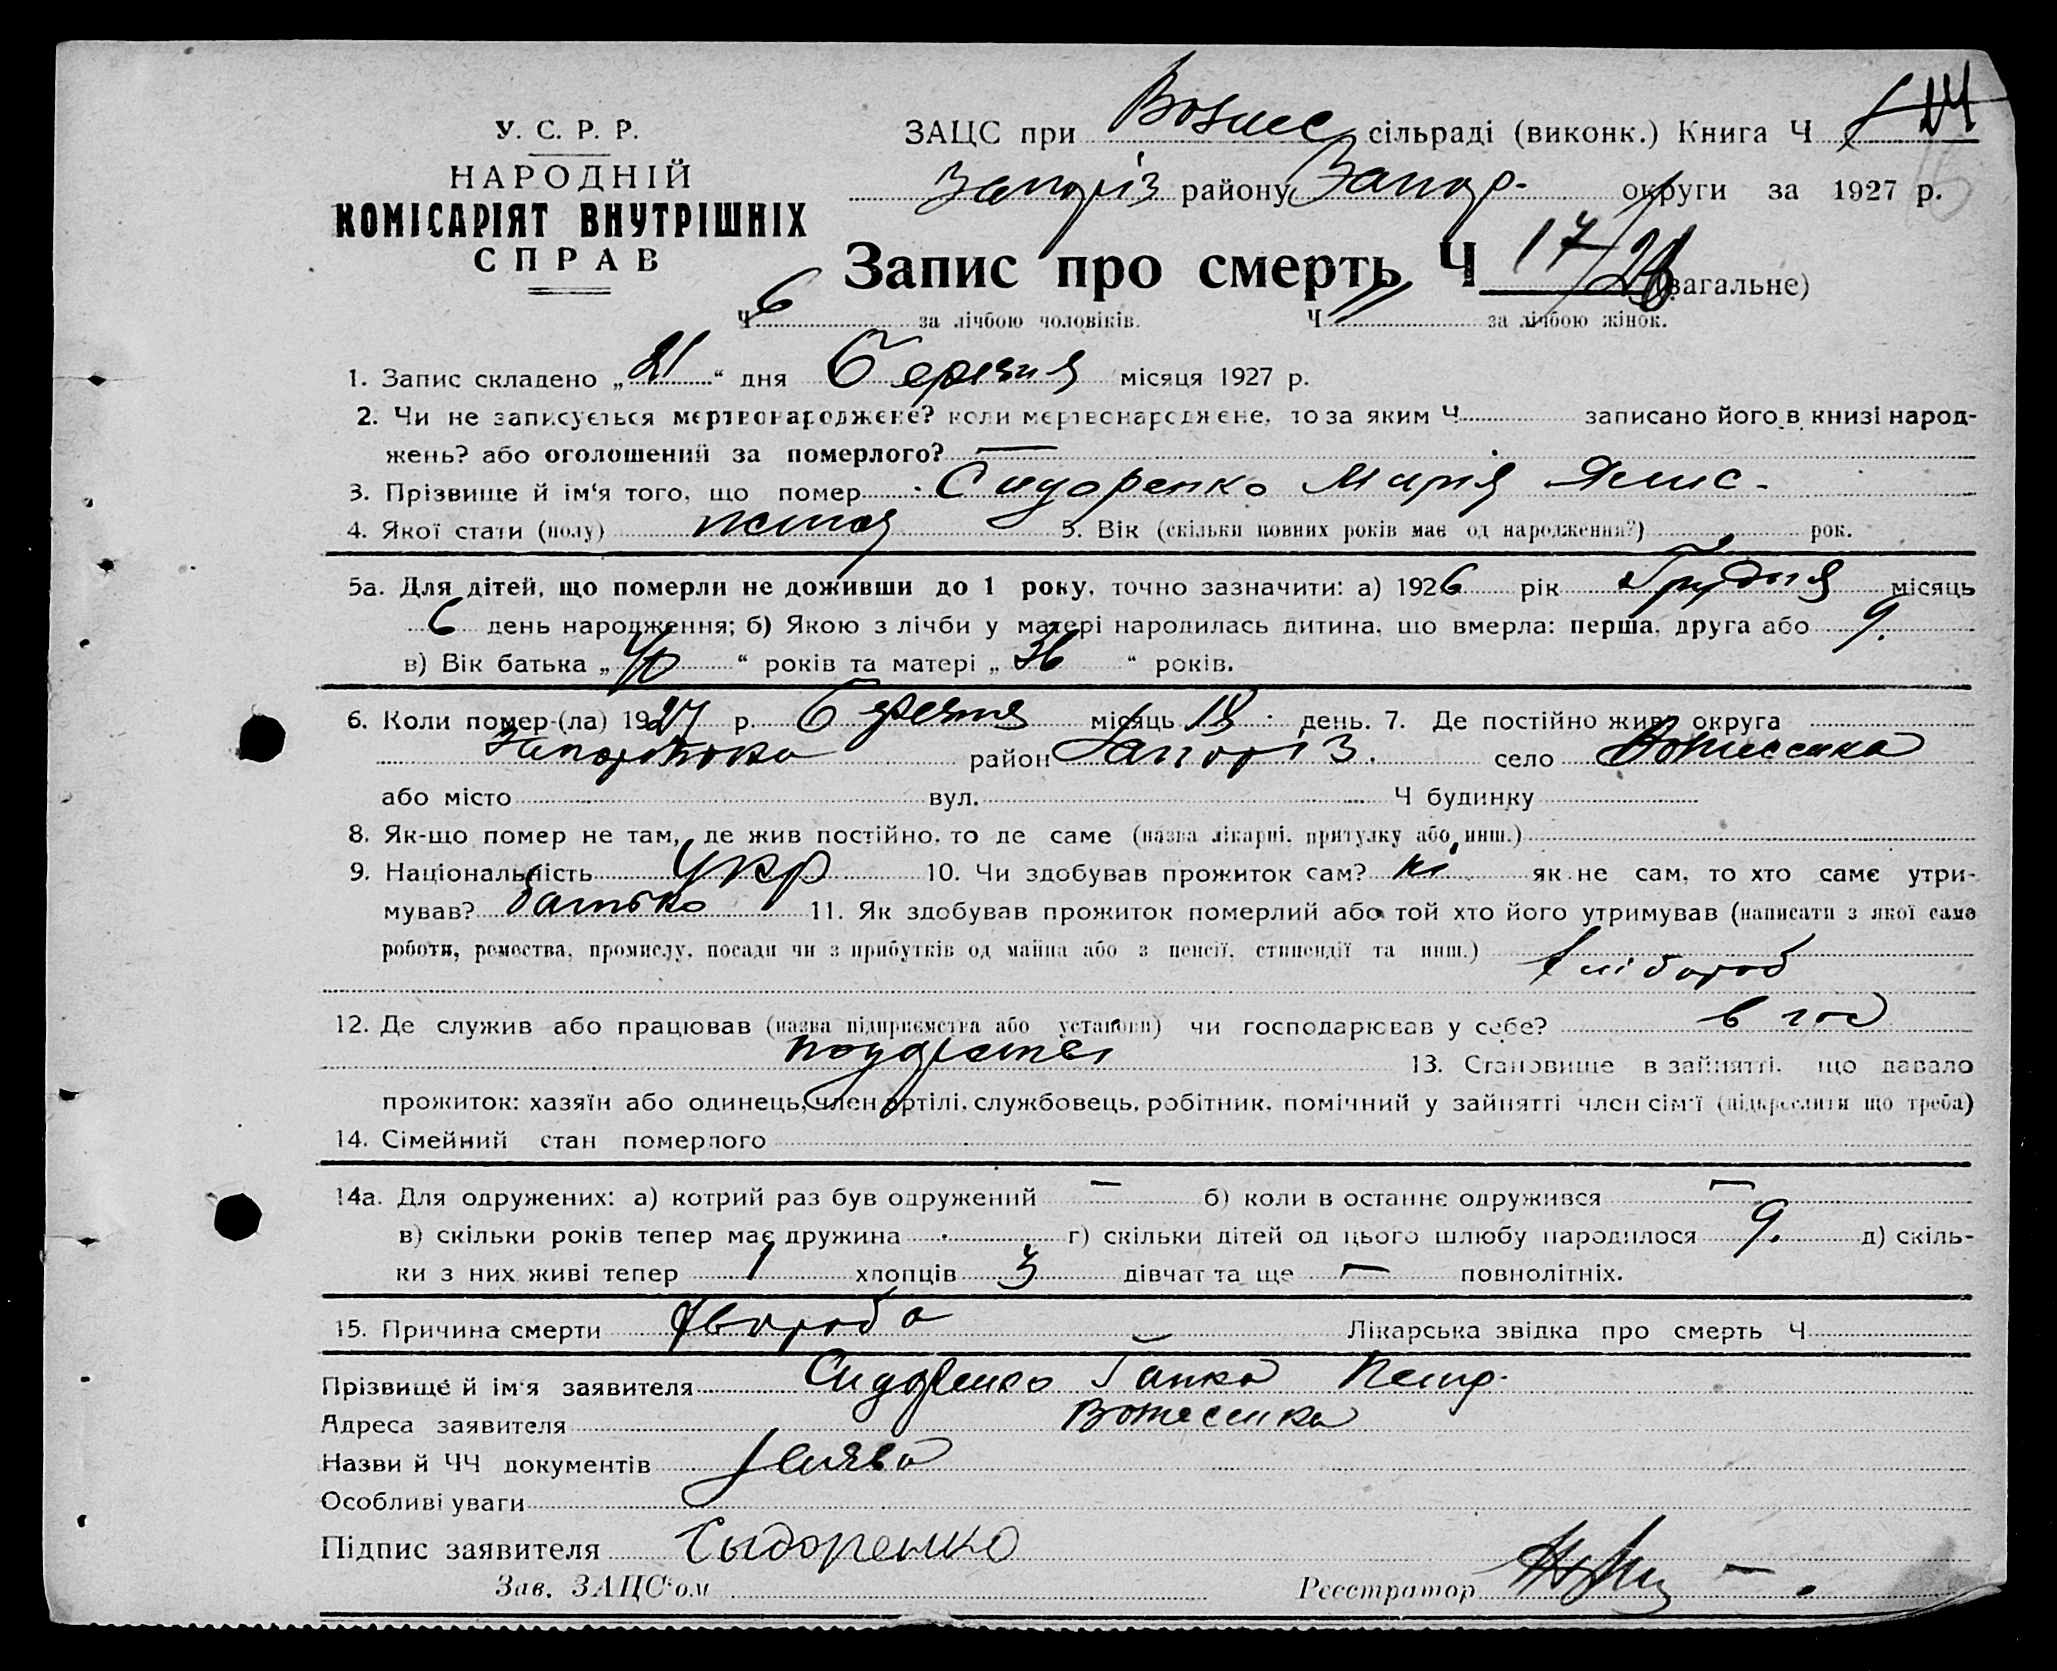 У. С. Р. Р.
НАРОДНІЙ
КОМІСАРІЯТ ВНУТРІШНІХ
СПРАВ
ЗАЦС при Вознес сільраді (виконк.) Книга Ч
Запоріз району Запор. округи за 1927 р.
Запис про смерть Ч 17/ (загальне)
Ч 6 за лічбою чоловіків. Ч 11 за лічбою жінок.
1. Запис складено „21“ дня Березня місяця 1927 р.
2. Чи не записується мертвонароджене? коли мертвонароджене, то за яким Ч записано його в книзі народ-
жень? або оголошений за померлого? —
3. Прізвище й ім‘я того, що помер Сидоренко Марія
4. Якої стати (полу) жіноч 5. Вік (скільки повних років має од народження?) рок.
5а. Для дітей, що померли не доживши до 1 року, точно зазначити: а) 1926 рік Грудня місяць
6 день народження; б) Якою з лічби у матері народилась дитина, що вмерла: перша, друга або 9.
в) Вік батька „40“ років та матері „36“ років.
6. Коли помер-(ла) 1927 р. Березня місяць 18 день. 7. Де постійно жив: округа
Запорізька район Запоріз. село Вознесенка
або місто вул. Ч будинку
8. Як-що помер не там, де жив постійно, то де саме (назва лікарні, притулку або инш.)
9. Національність Укр 10. Чи здобував прожиток сам? ні як не сам, то хто саме утри-
мував? батько 11. Як здобував прожиток померлий або той хто його утримував (написати з якої саме
роботи, ремества, промислу, посади чи з прибутків од майна або з пенсії, стипендії та инш.)
хлібороб
12. Де служив або працював (назва підприємства або установи) чи господарював у себе? в гос
13. Становище в зайнятті, що давало
прожиток: хазяїн або одинець, член артілі, службовець, робітник, помічний у зайнятті член сім‘ї (підкреслити що треба)
14. Сімейний стан померлого
14а. Для одружених: а) котрий раз був одружений — б) коли в останнє одружився —
в) скільки років тепер має дружина г) скільки дітей од цього шлюбу народилося 9. д) скіль-
ки з них живі тепер 1 хлопців 3 дівчат та ще — повнолітніх.
15. Причина смерти хвороба Лікарська звідка про смерть Ч
Прізвище й ім‘я заявителя Сидоренко Ганна Петр.
Адреса заявителя Вознесенка
Назви й ЧЧ документів заява
Особливі уваги
Підпис заявителя Сыдоренко
Зав. ЗАЦС‘ом Реєстратор